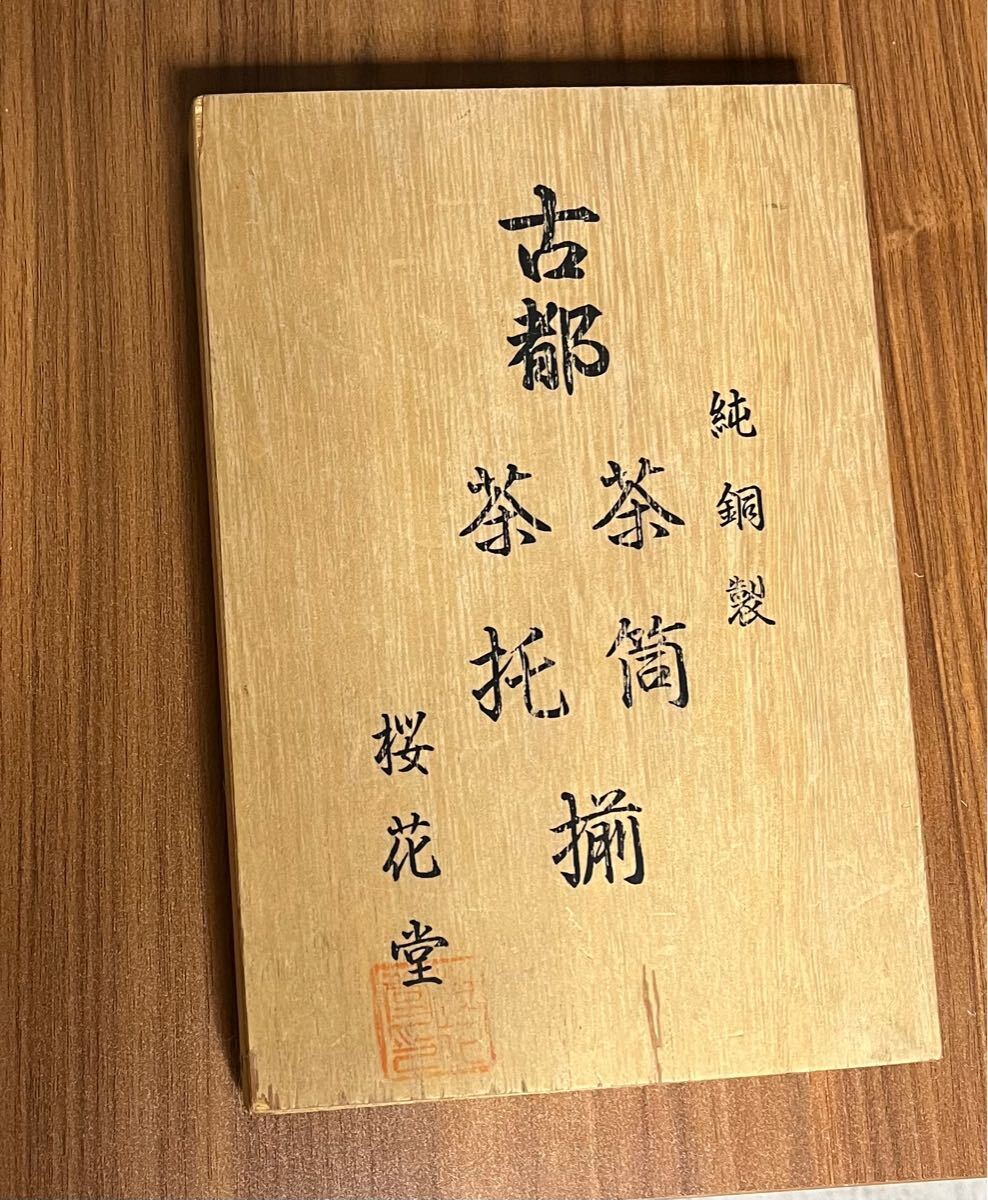 純銅製
古都
茶筒
茶托
揃
桜花堂